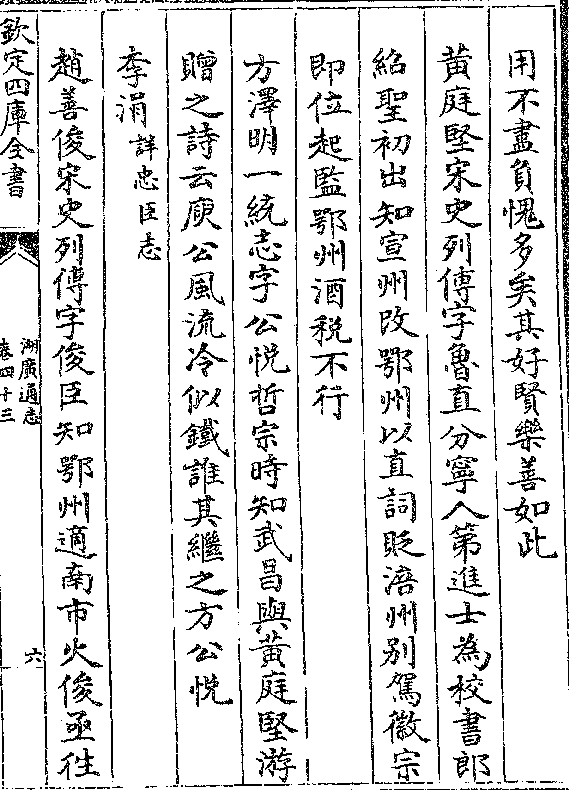 用不盡負愧多矣其好賢樂善如此
黃庭堅宋史列傳字魯直分寧人第進士為校書郎
紹聖初出知宣州改鄂州以直詞貶涪州別駕徽宗
即位起監鄂州酒税不行
方澤明一統志字公悅哲宗時知武昌與黃庭堅游
贈之詩云庾公風流冷似鐵誰其繼之方公悅
李涓詳忠臣志
趙善俊宋史列傳字俊臣知鄂州適南市火俊亟往
欽定四庫全書
湖廣通志
卷四十三
六